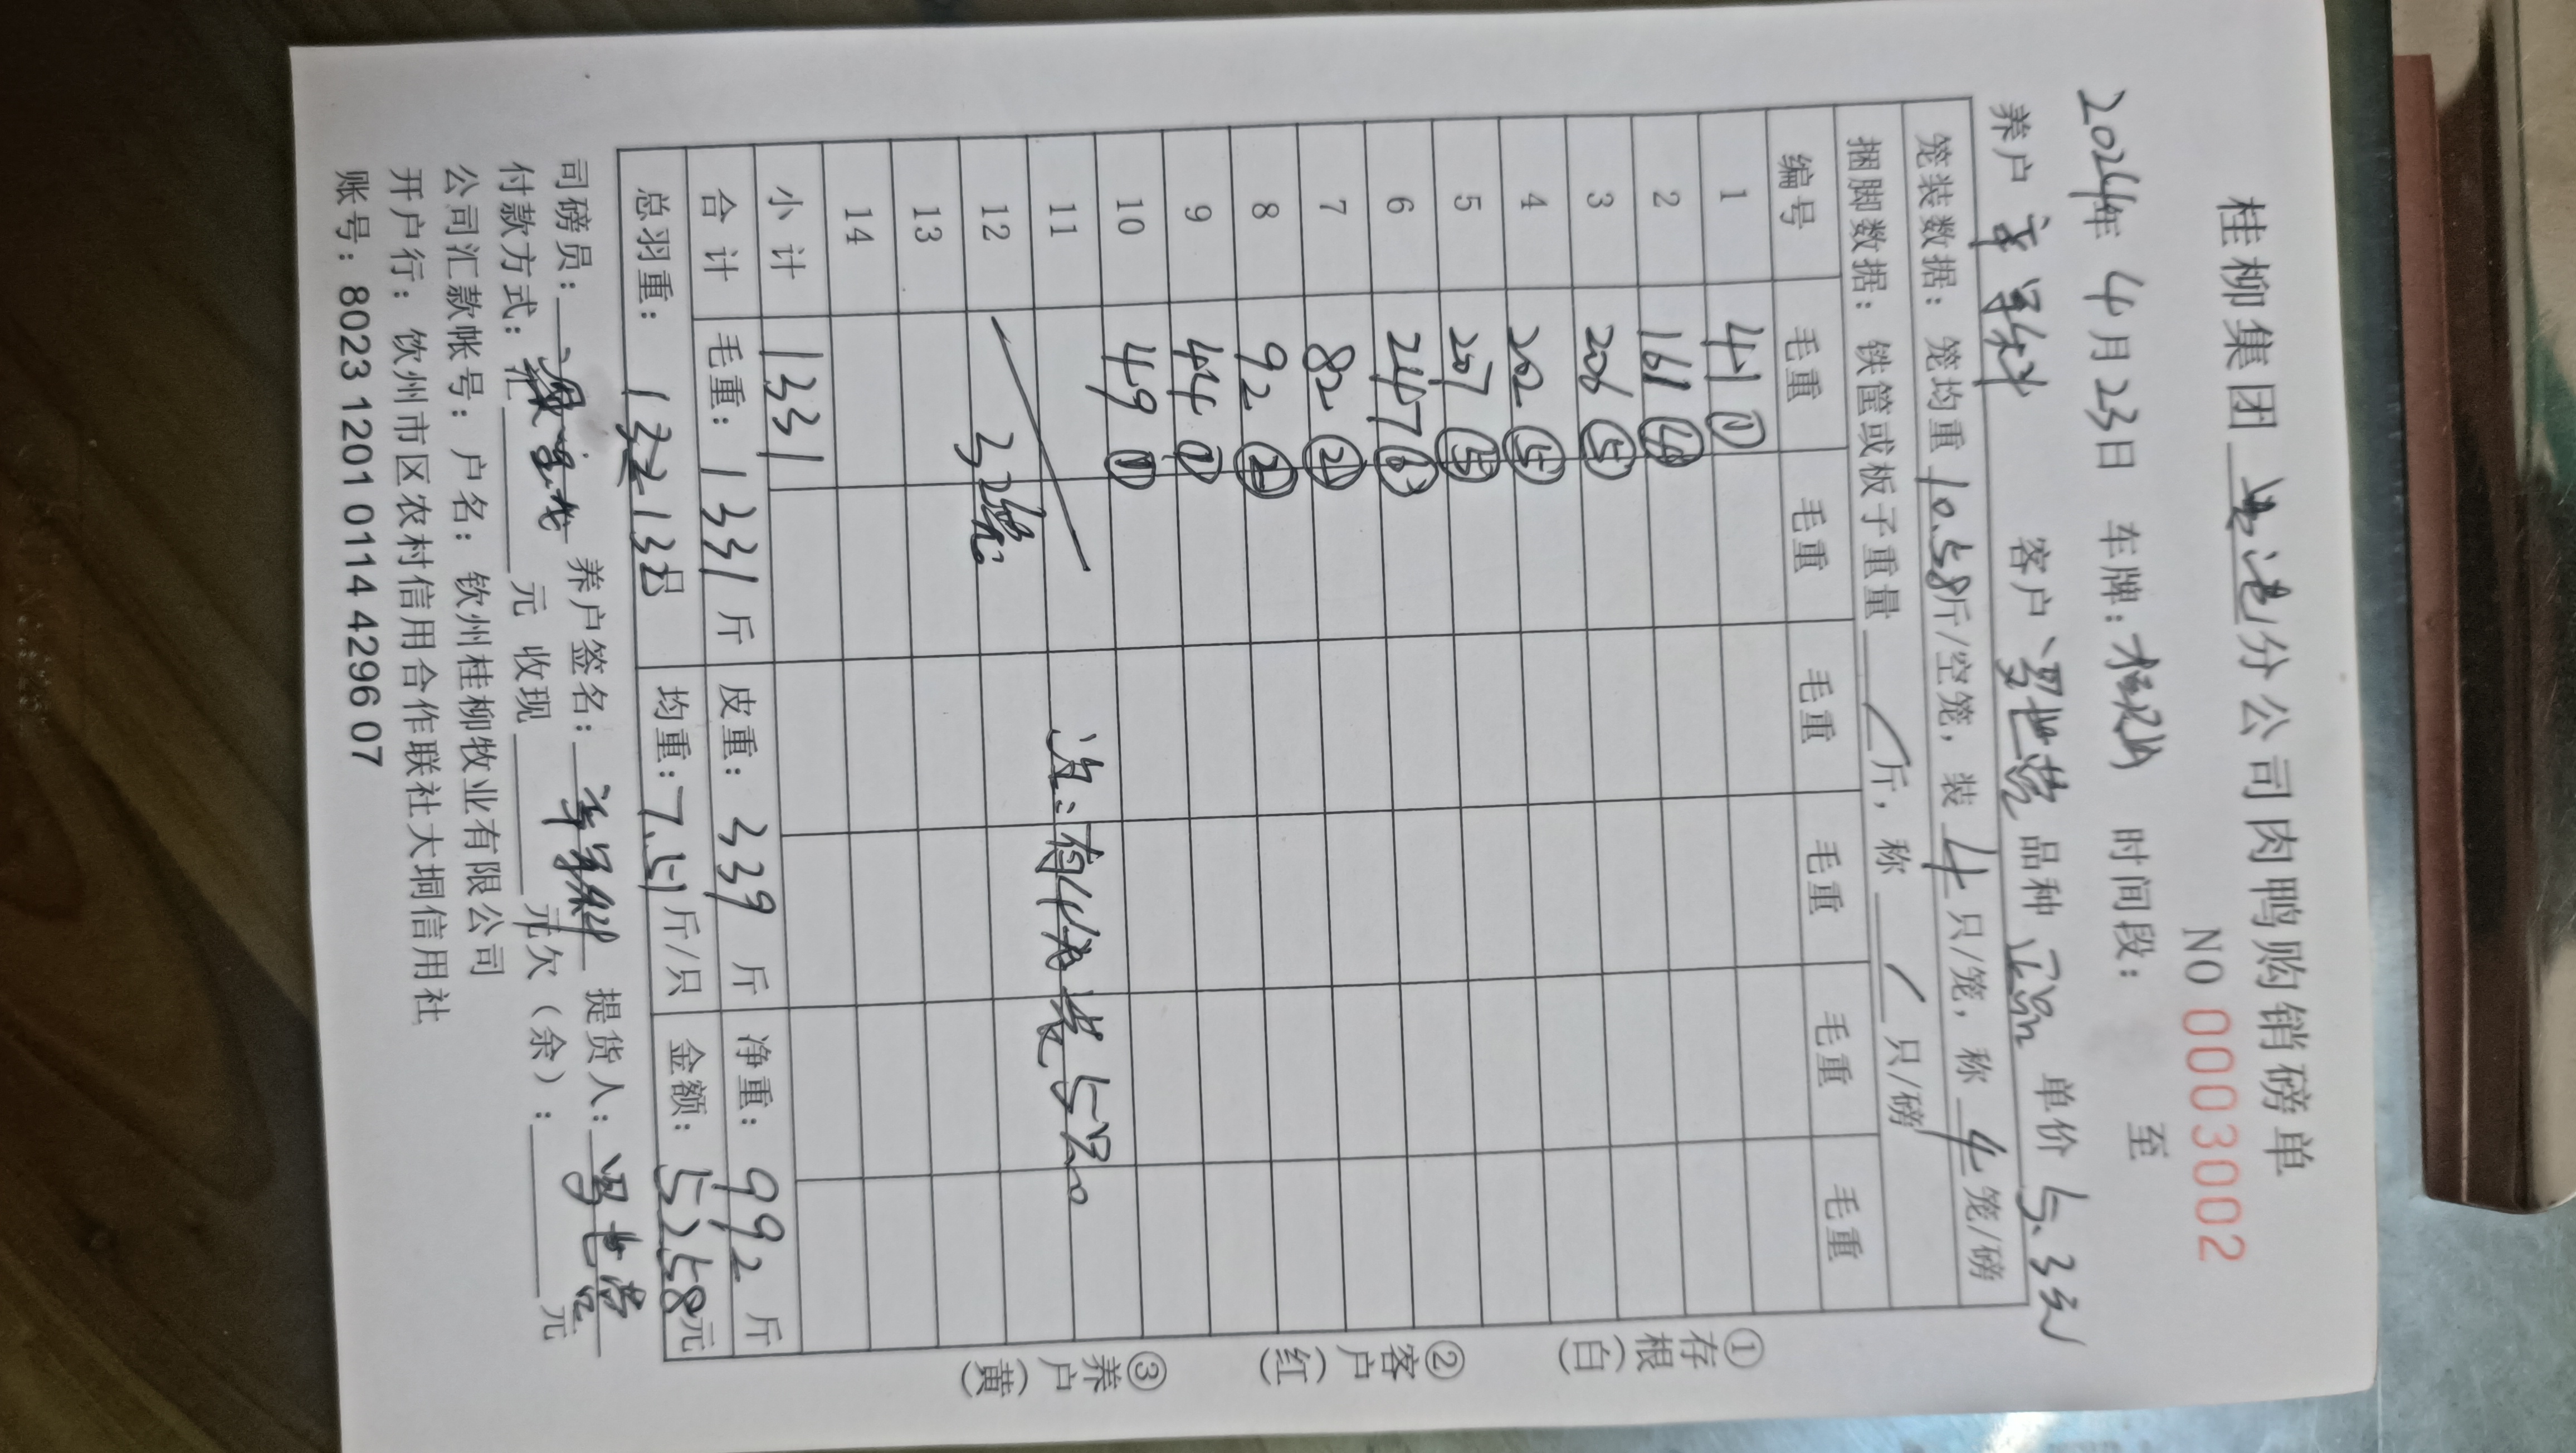 桂柳集团 分公司肉鸭购销磅单
NO 0003002
2024年 4月23日 车牌: 时间段: 至
养户 客户 品种 正品 单价 5.3元
笼装数据：笼均重 10.58斤/空笼，装 4 只/笼，称 4 笼/磅
捆脚数据：铁筐或板子重量 / 斤，称 / 只/磅
编号 毛重 毛重 毛重 毛重 毛重 毛重
1 41 ①
2 161 ④
3 206 ⑤
4 202 ⑤
5 207 ⑤
6 247 ⑥
7 82 ②
8 92 ②
9 44 ①
10 49 ①
11 注：有1笼装5只。
12 32笼
13
14
小计 1331
合计 毛重：1331 斤 皮重：339 斤 净重：992 斤
总羽重：132 只 均重：7.51斤/只 金额：5258元
司磅员： 养户签名： 提货人：
付款方式：汇 元 收现 元欠（余）： 元
公司汇款帐号：户名：钦州桂柳牧业有限公司
开户行：钦州市区农村信用合作联社大垌信用社
账号：8023 1201 0114 4296 07
①存根（白）
②客户（红）
③养户（黄）